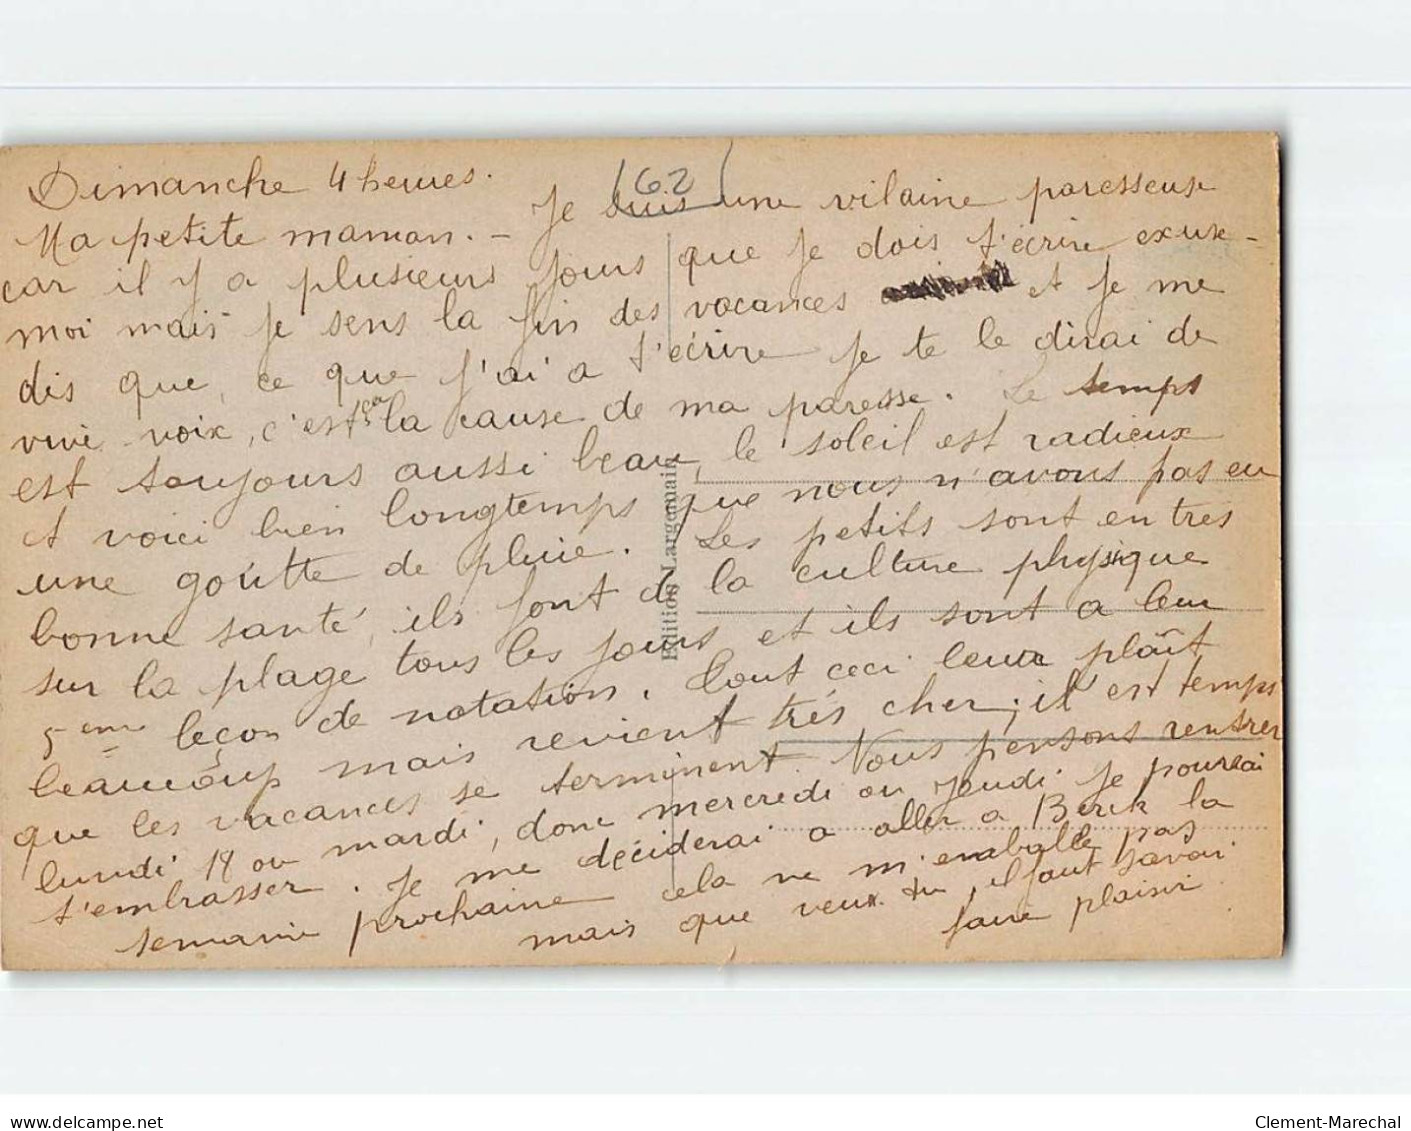 Dimanche 4 heures.
(62)
Ma petite maman. — Je suis une vilaine paresseuse
car il y a plusieurs jours que je dois t'écrire excuse-
moi mais je sens la fin des vacances et je me
dis que, ce que j'ai a t'écrire je te le dirai de
vive voix, c'est ça la cause de ma paresse. Le temps
est toujours aussi beau, le soleil est radieux
et voici bien longtemps que nous n'avons pas eu
une goûtte de pluie. Les petits sont en très
bonne santé, ils font de la culture physique
sur la plage tous les jours et ils sont a leur
5ème leçon de natation. Tout ceci leur plaît
beaucoup mais revient très cher, il est temps
que les vacances se terminent. Nous pensons rentrer
lundi 14 ou mardi, donc mercredi ou jeudi je pourrai
t'embrasser. Je me déciderai a aller a Berck la
semaine prochaine cela ne m'emballe pas
mais que veux tu, il faut savoir
faire plaisir
Edition Largemain
www.delcampe.net
Clement-Marechal